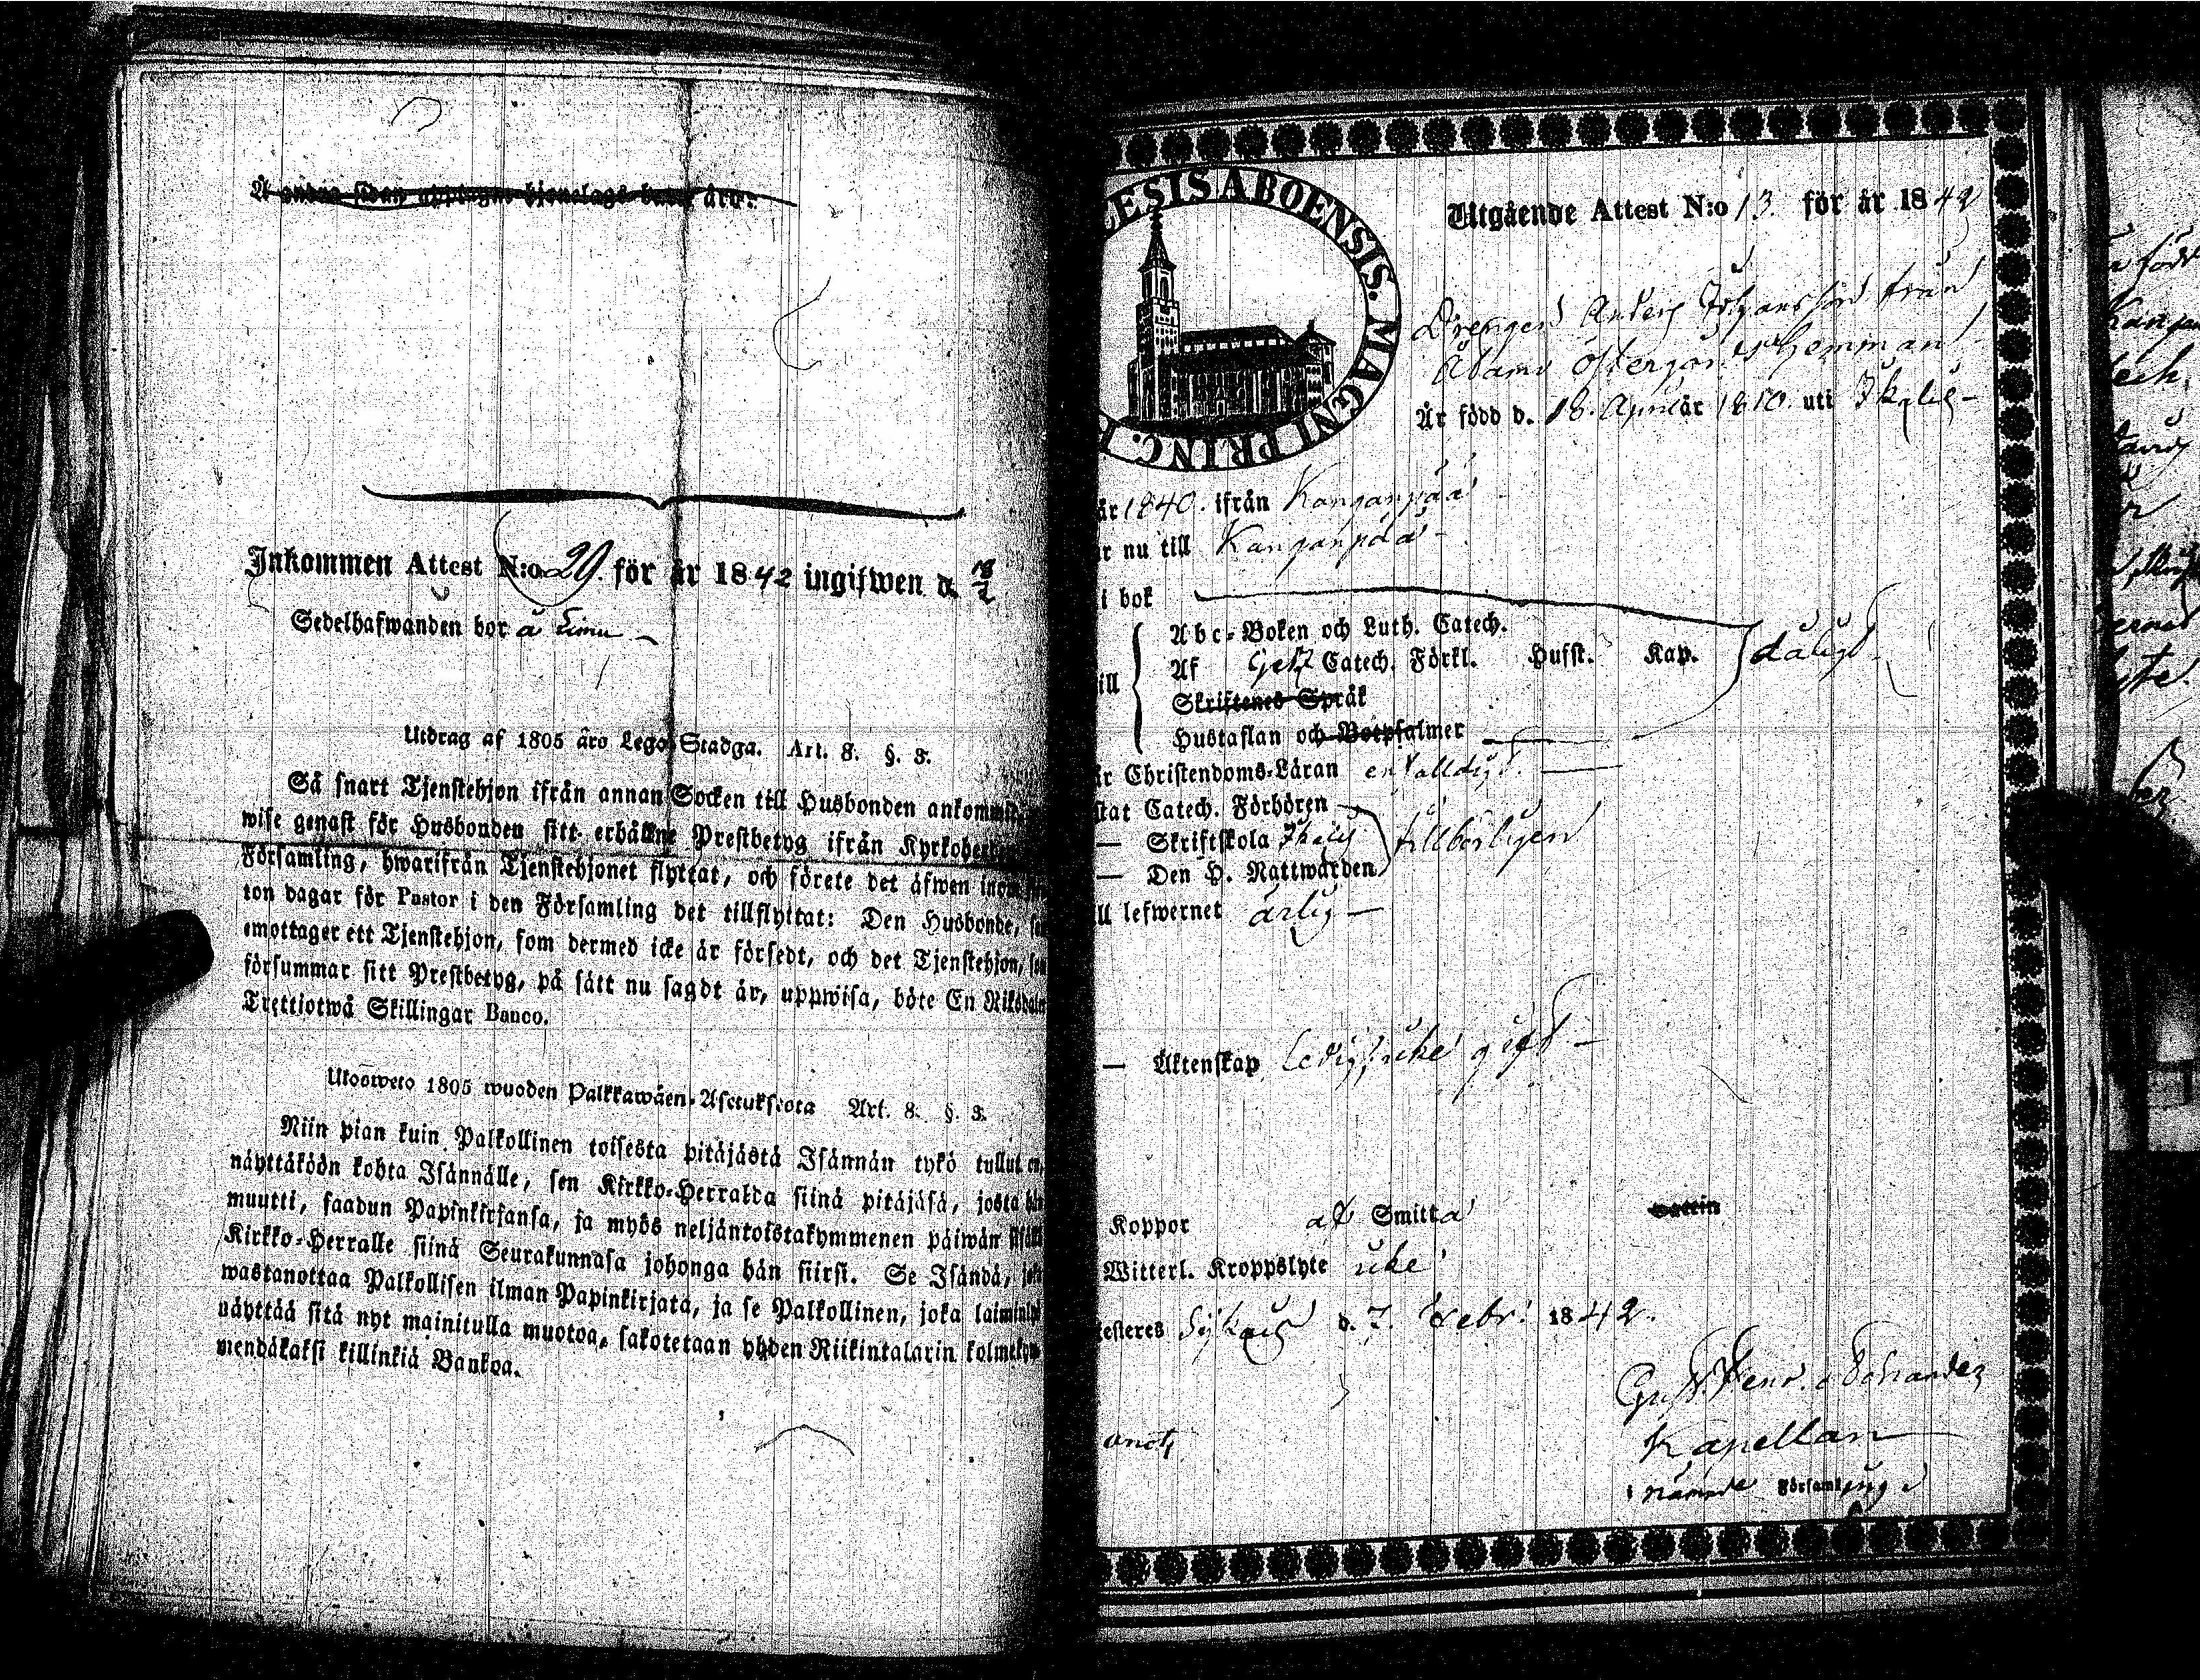 Å andra sidan upptagne hjonelags barn äro:
Inkommen Attest N:o 29. för år 1842 ingifwen d. 18/2
Sedelhafwanden bor å
Utdrag af 1805 åro Lego-Stadga. Art. 8. §. 3.
Så snart Tjenstehjon ifrån annan Socken till Husbonden ankommit,
wise genast för Husbonden sitt erhållne Prestbetyg ifrån
Församling, hwarifrån Tjenstehjonet flyttat, och förete det äfwen
ton dagar för Pastor i den Församling det tillflyttat: Den Husbonde,
emottager ett Tjenstehjon, som dermed icke är försedt, och det Tjenstehjon,
försummar sitt Prestbetyg, på sätt nu sagdt är, uppwisa, böte En
Trettiotwå Skillingar Banco.
Utosweto 1805 wuoden Palkkawäen-Asetuksesta Art. 8. §. 3.
Niin pian kuin Palkollinen toisesta pitäjästä Isännän tykö tullut on,
näyttäköön kohta Isännälle, sen Kirkko-Herralda siinä pitäjäsä, josta hän
muutti, saadun Papinkirjansa, ja myös neljäntoistakymmenen päiwän
Kirkko-Herralle siinä Seurakunnasa johonga hän siirsi. Se Isändä,
wastanottaa Palkollisen ilman Papinkirjata, ja se Palkollinen, joka
näyttää sitä nyt mainitulla muotoa, sakotetaan yhden Riikintalarin
mendäkaksi killinkiä Bankoa.
LESIS ABOENSIS. MAGNI PRINC. F
Utgående Attest N:o 13. för år 1842
Drengen Anders Johansson från
Adami Östergårds Hemman
År född d. 18. April år 1810. uti Ikalis
år 1840. ifrån Kanganpää
r nu till Kanganpää
i bok
Abc-Boken och Luth. Catech.
Af Catech. Förkl. Hufst. Kap. dåligt
ill
Skriftenes Språk
Hustaflan och Botpsalmer
är Christendoms-Läran enfalldigt.
stat Catech. Förhören
— Skriftskola Ikalis tillbörligen
— Den H. Nattwarden
ll lefwernet ärlig
— Äktenskap ledig, icke gift
Koppor af Smitta wattin
Witterl. Kroppslyte icke
testeres d. 7. Febr. 1842.
Gust. Henr.
Kapellan
i nämnde Församling